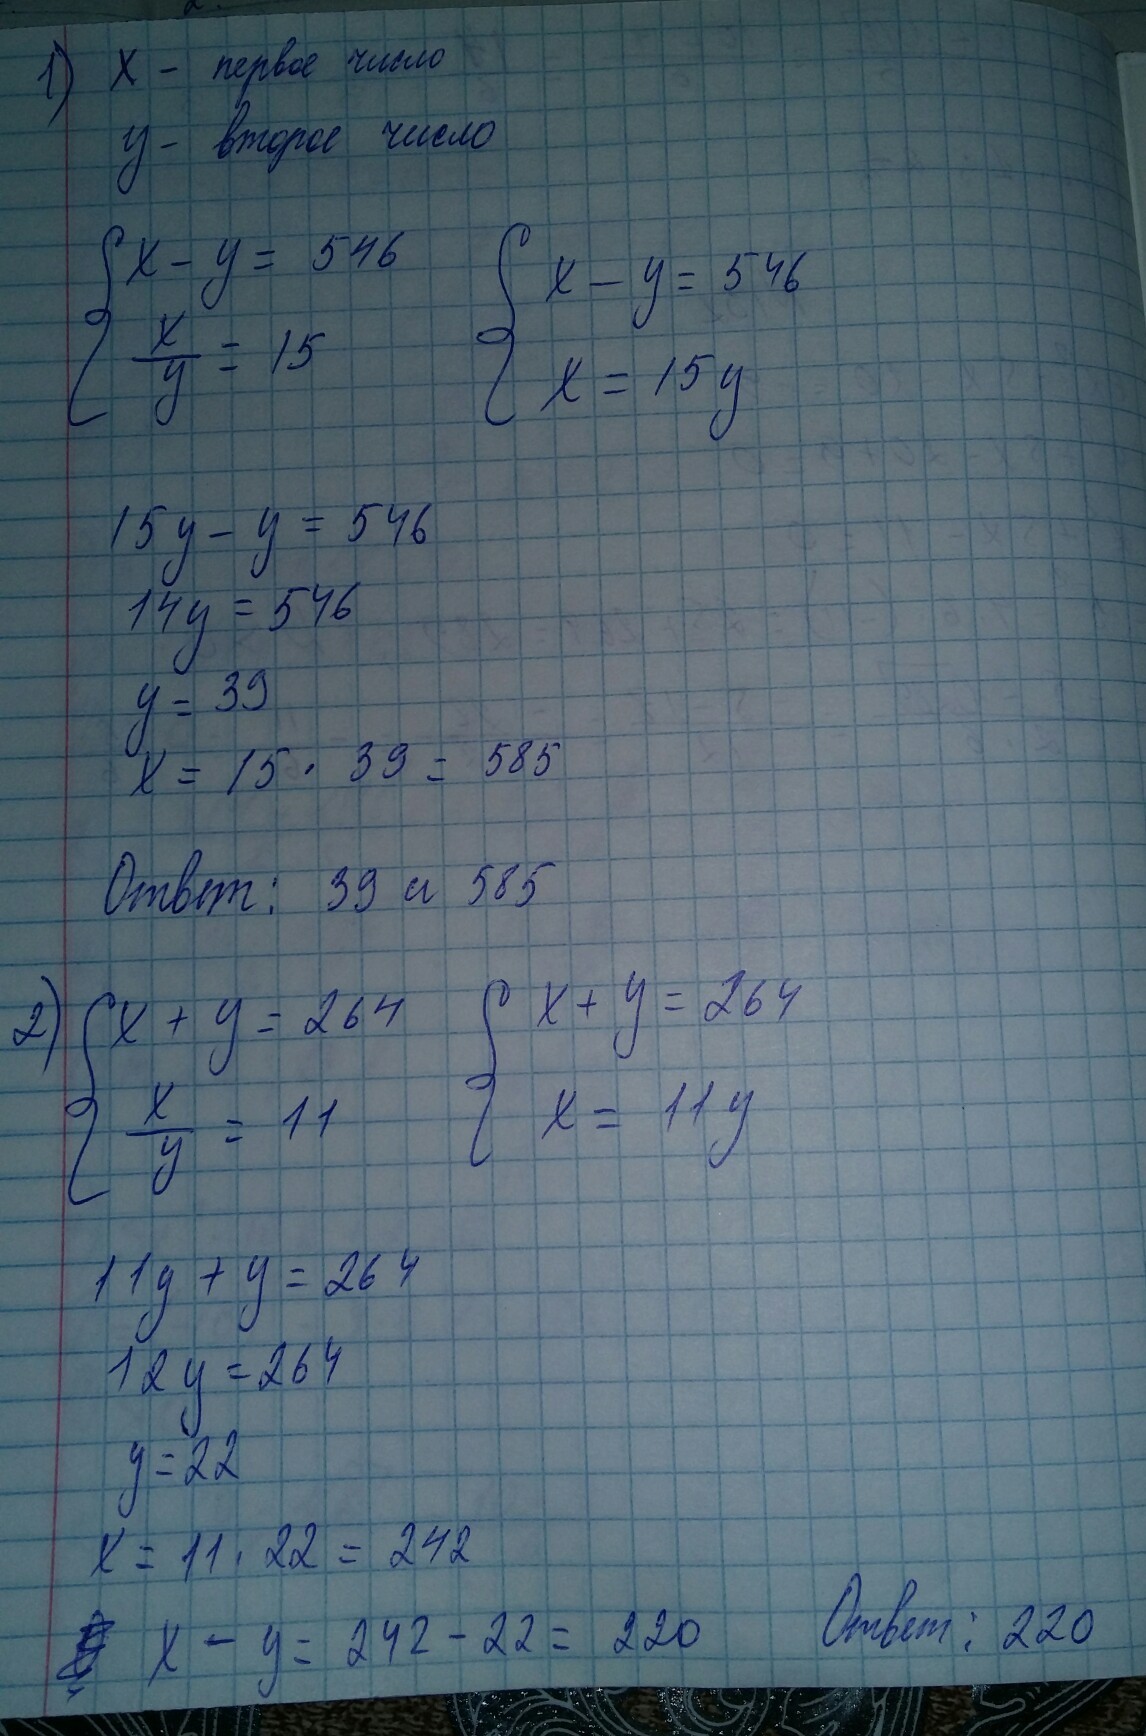 1) x - первое число
y - второе число
x - y = 546
x/y = 15
x - y = 546
x = 15y
15y - y = 546
14y = 546
y = 39
x = 15 · 39 = 585
Ответ: 39 и 585
2) x + y = 264
x/y = 11
x + y = 264
x = 11y
11y + y = 264
12y = 264
y = 22
x = 11 · 22 = 242
x - y = 242 - 22 = 220
Ответ: 220